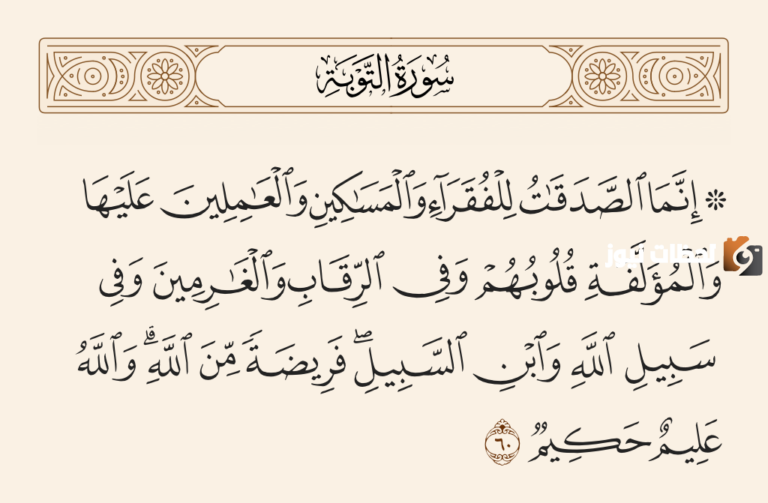 سُورَةُ التَّوْبَةِ
۞ إِنَّمَا ٱلصَّدَقَٰتُ لِلْفُقَرَآءِ وَٱلْمَسَٰكِينِ وَٱلْعَٰمِلِينَ عَلَيْهَا
وَٱلْمُؤَلَّفَةِ قُلُوبُهُمْ وَفِى ٱلرِّقَابِ وَٱلْغَٰرِمِينَ وَفِى
لحظات نيوز
سَبِيلِ ٱللَّهِ وَٱبْنِ ٱلسَّبِيلِۖ فَرِيضَةً مِّنَ ٱللَّهِۗ وَٱللَّهُ
عَلِيمٌ حَكِيمٌ ٦٠